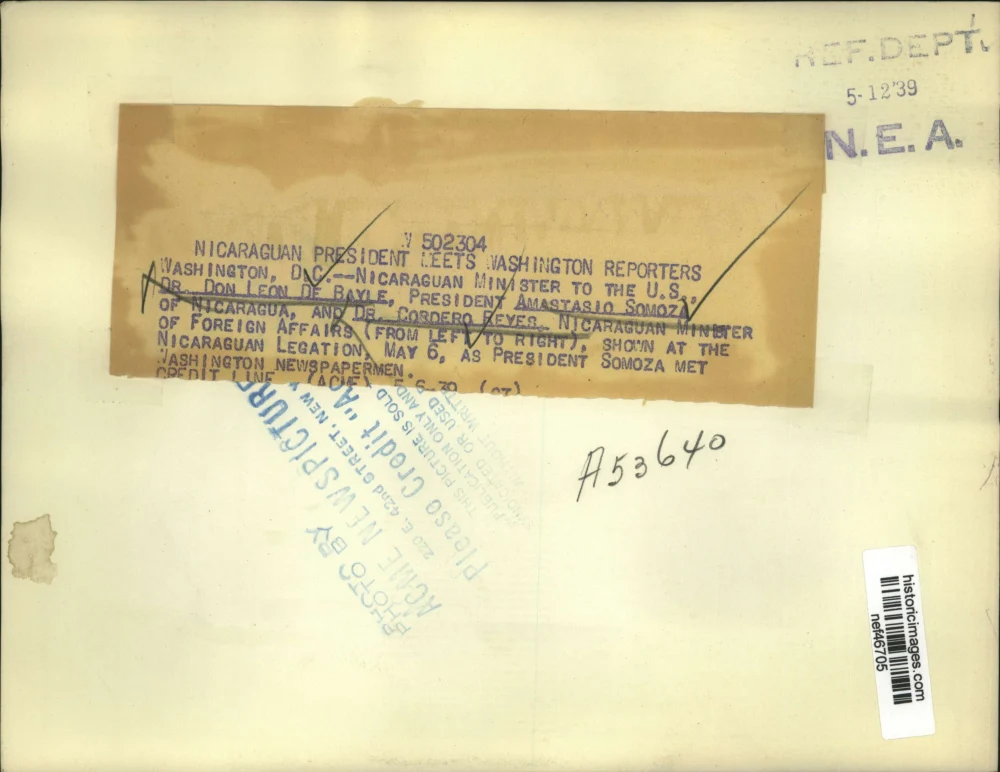 REF. DEPT.
5-12'39
N.E.A.
W 502304
NICARAGUAN PRESIDENT MEETS WASHINGTON REPORTERS
WASHINGTON, D.C.--NICARAGUAN MINISTER TO THE U.S.,
DR. DON LEON DE BAYLE, PRESIDENT AMASTASIO SOMOZA
OF NICARAGUA, AND DR. CORDERO REYES, NICARAGUAN MINISTER
OF FOREIGN AFFAIRS (FROM LEFT TO RIGHT), SHOWN AT THE
NICARAGUAN LEGATION, MAY 6, AS PRESIDENT SOMOZA MET
WASHINGTON NEWSPAPERMEN.
CREDIT LINE (ACME) 5-6-39
PHOTO BY
ACME NEWSPICTURE
220 E. 42nd STREET, NEW Y
Please Credit "AC
THIS PICTURE IS SOLD
PUBLICATION ONLY AND
OR USED
A53640
historicimages.com
nef46705